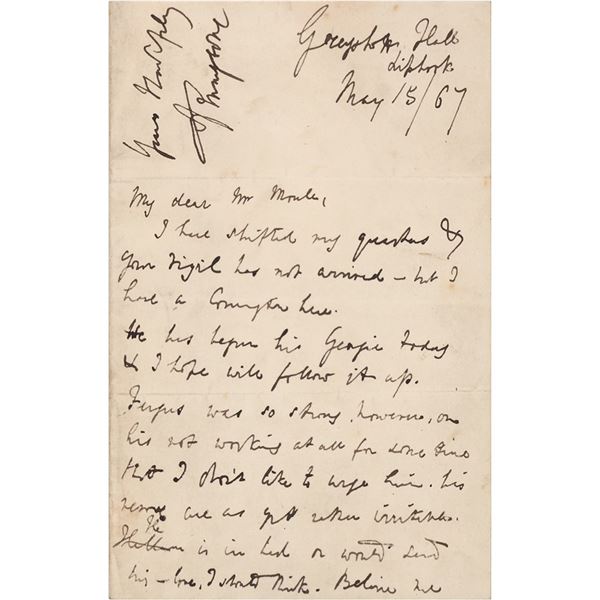 Grayshott Hall
Liphook
May 15/67
My dear Mr Moule,
I have shifted my quarters &
your Virgil has not arrived – but I
have a Conington here.
He has begun his Georgic today
& I hope will follow it up.
Fergus was so strong, however, on
his not working at all for some time
that I don't like to urge him. his
nerves are as yet rather irritable.
He is in bed or would send
his – love, I should think. Believe me
Yours